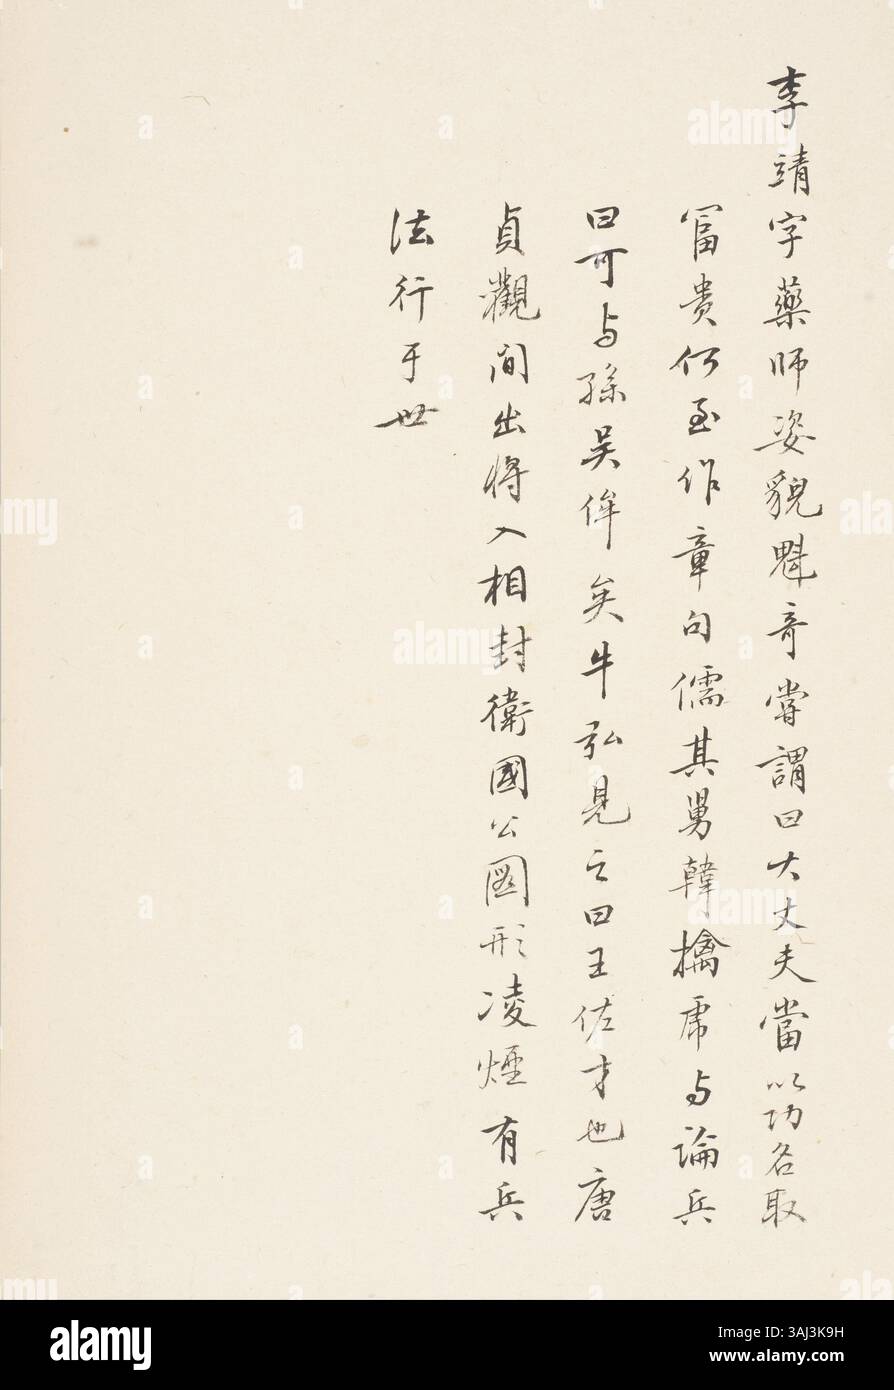 李靖字藥師姿貌魁奇嘗謂曰大丈夫當以功名取
富貴何至作章句儒其舅韓擒虎与論兵
曰可与孫吳侔矣牛弘見之曰王佐才也唐
貞觀間出將入相封衛國公圖形凌煙有兵
法行于世
alamy
Image ID: 3AJ3K9H
www.alamy.com